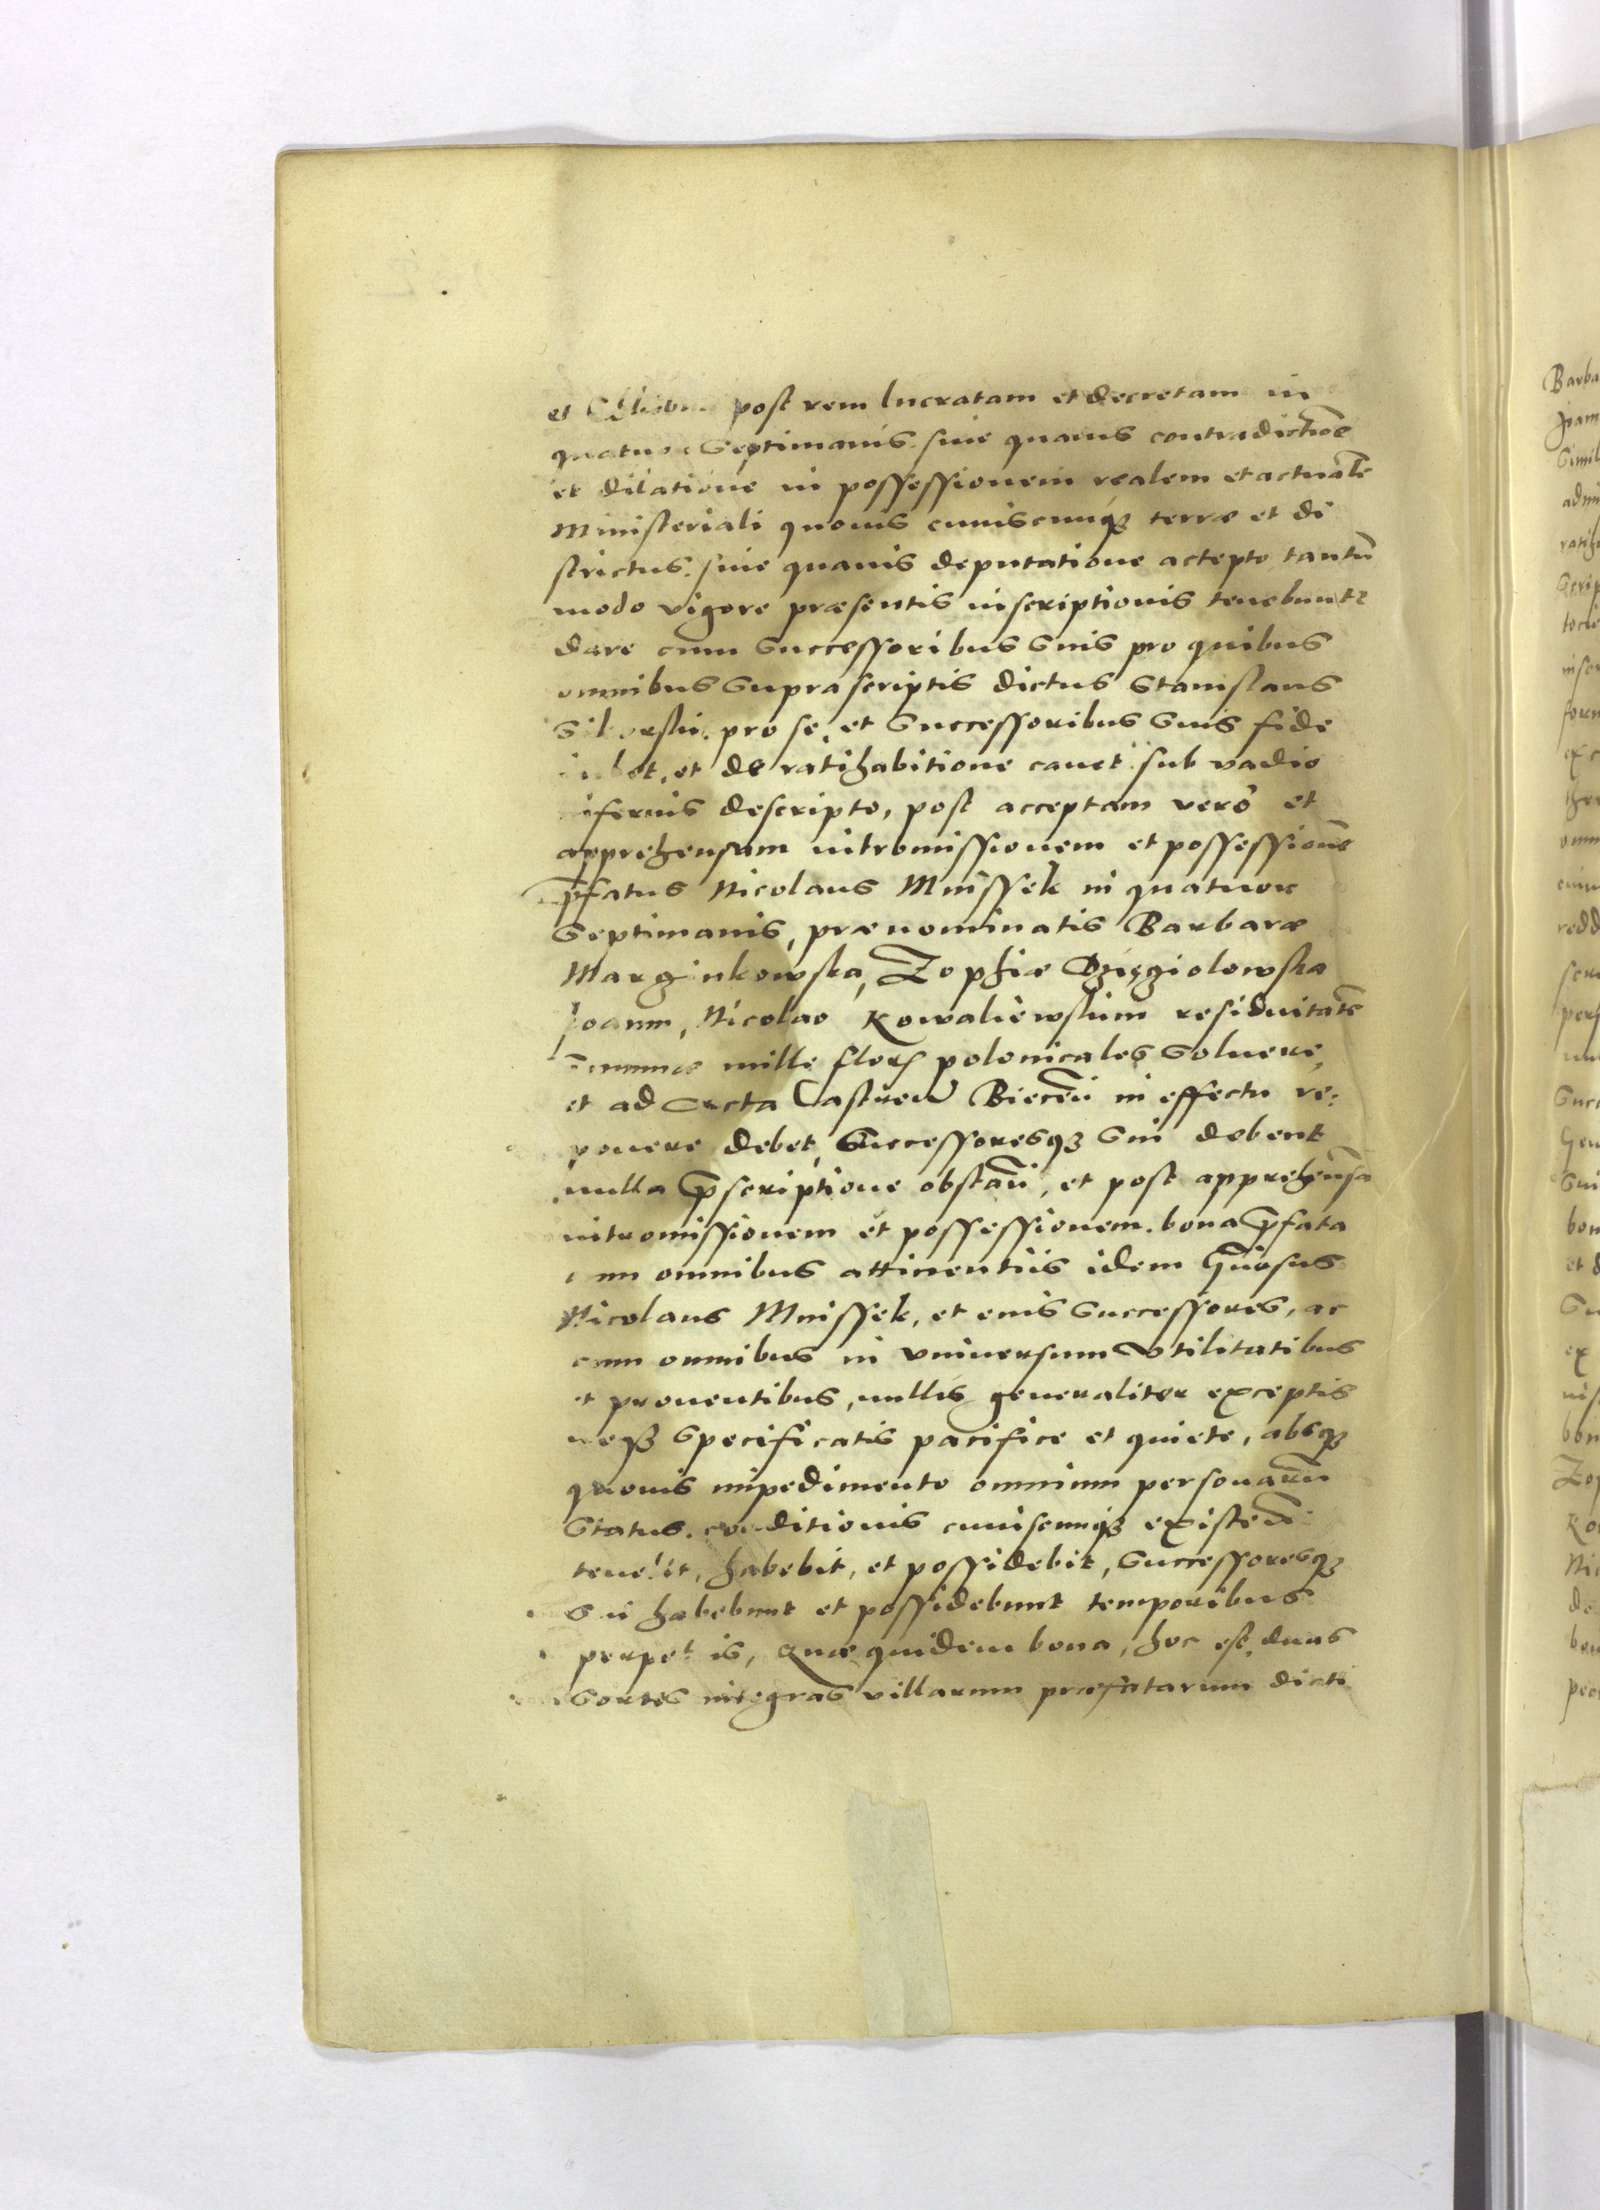 et post rem lucratam et decretam in
quatuor Septimanis sine quauis contradictiōe
et dilatione in possessionem realem et actualē
Ministeriali quouis cuiuscunqȝ terræ et di
strictus. sine quauis deputatione accepto tantū
modo vigore præsentis inscriptionis tenebuntr
dare cum Successoribus Suis pro quibus
omnibus Suprascriptis dictus Stanislaus
pro se, et Successoribus Suis fide
iubet, et de ratihabitione cauet sub vadio
inferius descripto, post acceptam verò et
apprehensam intromissionem et possessionē
p̄fatus Nicolaus Mnissek in quatuor
Septimanis, prænominatis Barbaræ
Marginkowska, Zophiæ Dzięgiolowska
Joanni, Nicolao Kowaliewskim residuitatē
Summæ mille flor polonicales Soluere,
et ad Acta Castren̄ Biecēn in effectu re:
ponere debet, Successoresqȝ Sui debent
nulla p̄scriptione obstan̄, et post apprehēnsā
intromissionem et possessionem. bona p̄fata
cum omnibus attinentiis idem Gn̄osus
Nicolaus Mnissek, et eius Successores, ac
cum omnibus in vniuersum Vtilitatibus
et prouentibus, nullis generaliter exceptis
neqȝ Specificatis pacifice et quiete, absqȝ
quouis impedimento omnium personarū
Status. conditionis cuiuscunqȝ existen̄
tenebit, habebit, et possidebit, Successoresqȝ
Sui habebunt et possidebunt temporibus
perpetuis, Quæ quidem bona, hoc est, duas
Sortes integras villarum præfatarum dicti